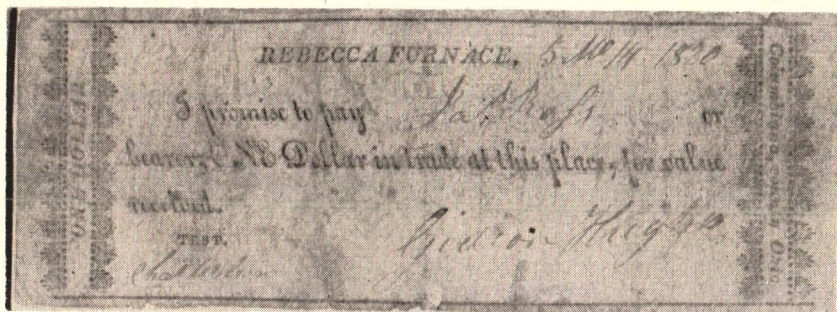 REBECCA FURNACE, 5 Mo 14 1820
I promise to pay Jas. Ross or
bearer ONE Dollar in trade at this place, for value
received.
TEST.
Gideon Hughes
ONE DOLLAR
Columbiana, ONE